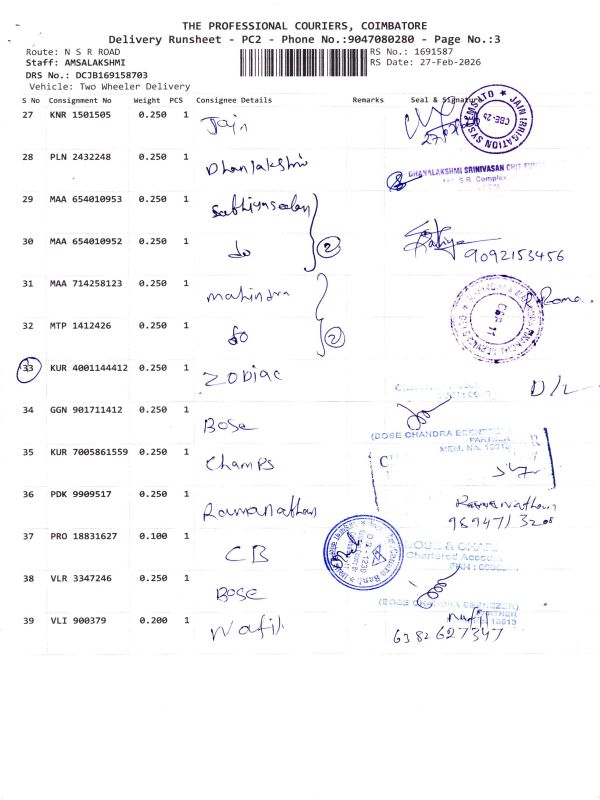 THE PROFESSIONAL COURIERS, COIMBATORE
Delivery Runsheet - PC2 - Phone No.:9047080280 - Page No.:3
Route: N S R ROAD
RS No.: 1691587
Staff: AMSALAKSHMI
RS Date: 27-Feb-2026
DRS No.: DCJB169158703
Vehicle: Two Wheeler Delivery
S No Consignment No Weight PCS Consignee Details Remarks Seal & Signature
27 KNR 1501505 0.250 1 Jain
JAIN IRRIGATION SYSTEMS LTD
CBE-25
28 PLN 2432248 0.250 1 Dhanlakshmi
DHANALAKSHMI SRINIVASAN CHIT FUND
S.R. Complex
29 MAA 654010953 0.250 1 Sathiyaseelan
30 MAA 654010952 0.250 1 do 2
9092153456
31 MAA 714258123 0.250 1 mahindra
R. Rama
32 MTP 1412426 0.250 1 do 2
33 KUR 4001144412 0.250 1 ZODIAC
D/L
34 GGN 901711412 0.250 1 BOSE
(BOSE CHANDRA EBENEZER)
PARTNER
MEM. No.
35 KUR 7005861559 0.250 1 Champs
36 PDK 9909517 0.250 1 Ramanathan
Ramanathan
37 PRO 18831627 0.100 1 CB
Chartered Accou
38 VLR 3347246 0.250 1 BOSE
(BOSE CHANDRA EBENEZER)
PARTNER
39 VLI 900379 0.200 1 Nafil
6382627347